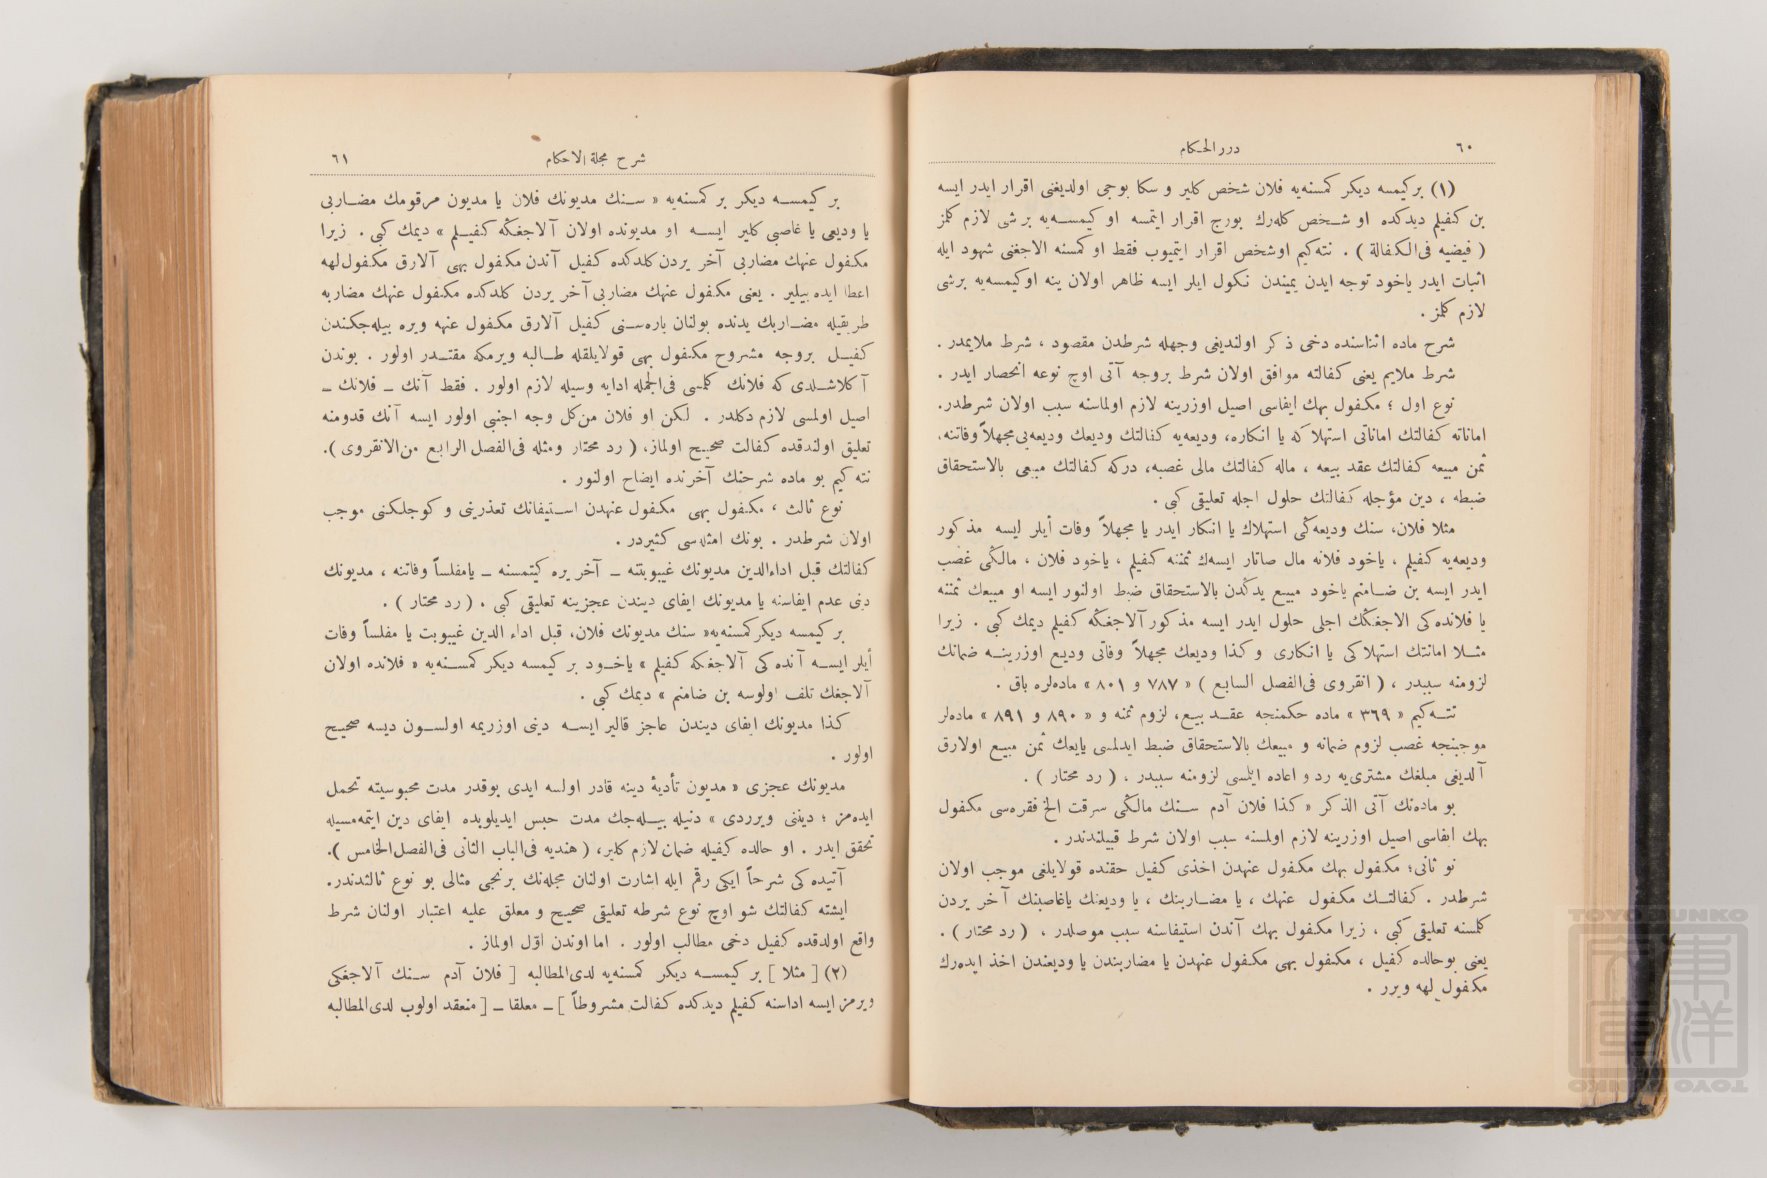 ٦٠
دررالحكام
(١) بركيمسه ديكر كمسنه‌يه فلان شخص كلير و سكا بوجى اولديغنى اقرار ايدر ايسه
بن كفيلم ديدكده او شـخص كله‌رك بورج اقرار ايتمسه او كيمسـه‌يه برشى لازم كلمز
( فيضيه فى‌الكفالة ) . نته‌كيم اوشخص اقرار ايتميوب فقط اوكمسنه الاجغنى شهود ايله
اثبات ايدر ياخود توجه ايدن يميندن نكول ايلر ايسه ظاهر اولان ينه اوكيمسه‌يه برشى
لازم كلمز .
شرح ماده اثناسنده دخى ذكر اولنديغى وجهله شرطدن مقصود ، شرط ملايمدر .
شرط ملايم يعنى كفالته موافق اولان شرط بروجه آتى اوچ نوعه انحصار ايدر .
نوع اول ؛ مكفول بهك ايفاسى اصيل اوزرينه لازم اولماسنه سبب اولان شرطدر.
اماناته كفالتك اماناتى استهلاكه يا انكاره، وديعه‌يه كفالتك وديعك وديعه‌يى مجهلاً وفاتنه،
ثمن مبيعه كفالتك عقد بيعه ، ماله كفالتك مالى غصبه، دركه كفالتك مبيعى بالاستحقاق
ضبطه ، دين مؤجله كفالتك حلول اجله تعليقى كبى .
مثلا فلان، سنك وديعه‌كى استهلاك يا انكار ايدر يا مجهلاً وفات أيلر ايسه مذكور
وديعه‌يه كفيلم ، ياخود فلانه مال صاتار ايسه‌ك ثمننه كفيلم ، ياخود فلان ، مالكى غصب
ايدر ايسه بن ضـامنم ياخود مبيع يدكدن بالاستحقاق ضبط اولنور ايسه او مبيعك ثمننه
يا فلانده‌كى الاجغكك اجلى حلول ايدر ايسه مذكور آلاجغكه كفيلم ديمك كبى . زيرا
مثـلا امانتك استهلاكى يا انكارى و كذا وديعك مجهلاً وفاتى وديع اوزرينـه ضمانك
لزومنه سببدر ، ( انقروى فى‌الفصل السابع ) « ٧٨٧ و ٨٠١ » ماده‌لره باق .
نتـه‌كيم « ٣٦٩ » ماده حكمنجه عقـد بيع، لزوم ثمنه و « ٨٩٠ و ٨٩١ » ماده‌لر
موجبنجه غصب لزوم ضمانه و مبيعك بالاستحقاق ضبط ايدلمسى بايعك ثمن مبيع اولارق
آلديغى مبلغك مشترى‌يه رد و اعاده ايتلمسى لزومنه سببدر ، ( رد محتار ) .
بو ماده‌نك آتى الذكر « كذا فلان آدم سـنك مالكى سرقت الخ فقره‌سى مكفول
بهك ايفاسى اصيل اوزرينه لازم اولمسنه سبب اولان شرط قبيلندندر .
نو ثانى؛ مكفول بهك مكفول عنهدن اخذى كفيل حقنده قولايلغى موجب اولان
شرطدر . كفالتـك مكفول عنهك ، يا مضـاربنك ، يا وديعنك ياغاصبنك آخر يردن
كلمسنه تعليقى كبى ، زيرا مكفول بهك آندن استيفاسنه سبب موصلدر ، ( رد محتار ) .
يعنى بوحالده كفيل ، مكفول بهى مكفول عنهدن يا مضاربندن يا وديعندن اخذ ايده‌رك
مكفول لهه ويرر .
شرح مجلة الاحكام
٦١
بر كيمسـه ديكر بر كمسنه‌يه « سـنك مديونك فلان يا مديون مرقومك مضـاربى
يا وديعى يا غاصبى كلير ايسـه او مديونده اولان آلاجغكه كفيـلم » ديمك كبى . زيرا
مكفول عنهك مضاربى آخر يردن كلدكده كفيل آندن مكفول بهى آلارق مكفول‌لهه
اعطا ايده بيلير . يعنى مكفول عنهك مضاربى آخر يردن كلدكده مكفول عنهك مضاربه
طريقيله مضـاربك يدنده بولنان پاره‌سـنى كفيل آلارق مكفول عنهه ويره بيله‌جكندن
كفيـل بروجه مشروح مكفول بهى قولايلقله طـالبه ويرمكه مقتـدر اولور . بوندن
آكلاشـلدى كه فلانك كلمسى فى‌الجمله ادايه وسيله لازم اولور . فقط آنك ـ فلانك ـ
اصيل اولمسى لازم دكلدر . لكن او فلان من‌كل وجه اجنبى اولور ايسه آنك قدومنه
تعليق اولندقده كفالت صحيح اولماز، ( رد محتار ومثله فى‌الفصل الرابع من‌الانقروى ).
نته كيم بو ماده شرحنك آخرنده ايضاح اولنور .
نوع ثالث ، مكفول بهى مكفول عنهدن اسـتيفانك تعذرينى و كوجلكنى موجب
اولان شرطدر . بونك امثله‌سى كثيردر .
كفالتك قبل اداءالدين مديونك غيبوبتنه ـ آخر يره كيتمسنه ـ يامفلساً وفاتنه ، مديونك
دينى عدم ايفاسنه يا مديونك ايفاى ديندن عجزينه تعليقى كبى ، ( رد محتار ) .
بر كيمسه ديكر كمسنه‌يه« سنك مديونك فلان، قبل اداء الدين غيبوبت يا مفلساً وفات
أيلر ايسـه آنده‌كى آلاجغكه كفيلم » ياخـود بر كيمسه ديكر كمسـنه‌يه « فلانده اولان
آلاجغك تلف اولورسه بن ضامنم » ديمك كبى .
كذا مديونك ايفاى ديندن عاجز قالير ايسـه دينى اوزريمه اولسـون ديسه صحيح
اولور .
مديونك عجزى « مديون تأديۀ دينه قادر اولسه ايدى بوقدر مدت محبوسيته تحمل
ايده‌مز ؛ ديننى ويرردى » دنيله بيـله‌جك مدت حبس ايديلوبده ايفاى دين ايتمه‌مسيله
تحقق ايدر . او حالده كفيله ضمان لازم كلير، ( هنديه فى‌الباب الثانى فى‌الفصل‌الخامس ).
آتيده‌كى شرحاً ايكى رقم ايله اشارت اولنان مجله‌نك برنجى مثالى بو نوع ثالثدندر.
ايشته كفالتك شو اوچ نوع شرطه تعليقى صحيح و معلق عليه اعتبار اولنان شرط
واقع اولدقده كفيل دخى مطالب اولور . اما اوندن اوّل اولماز .
(٢) [ مثلا ] بر كيمسـه ديكر كمسنه‌يه لدى‌المطالبه [ فلان آدم سـنك آلاجغكى
ويرمز ايسه اداسنه كفيلم ديدكده كفالت مشروطاً ] ـ معلقا ـ [ منعقد اولوب لدى‌المطالبه
TOYO BUNKO
東洋文庫
TOYO BUNKO